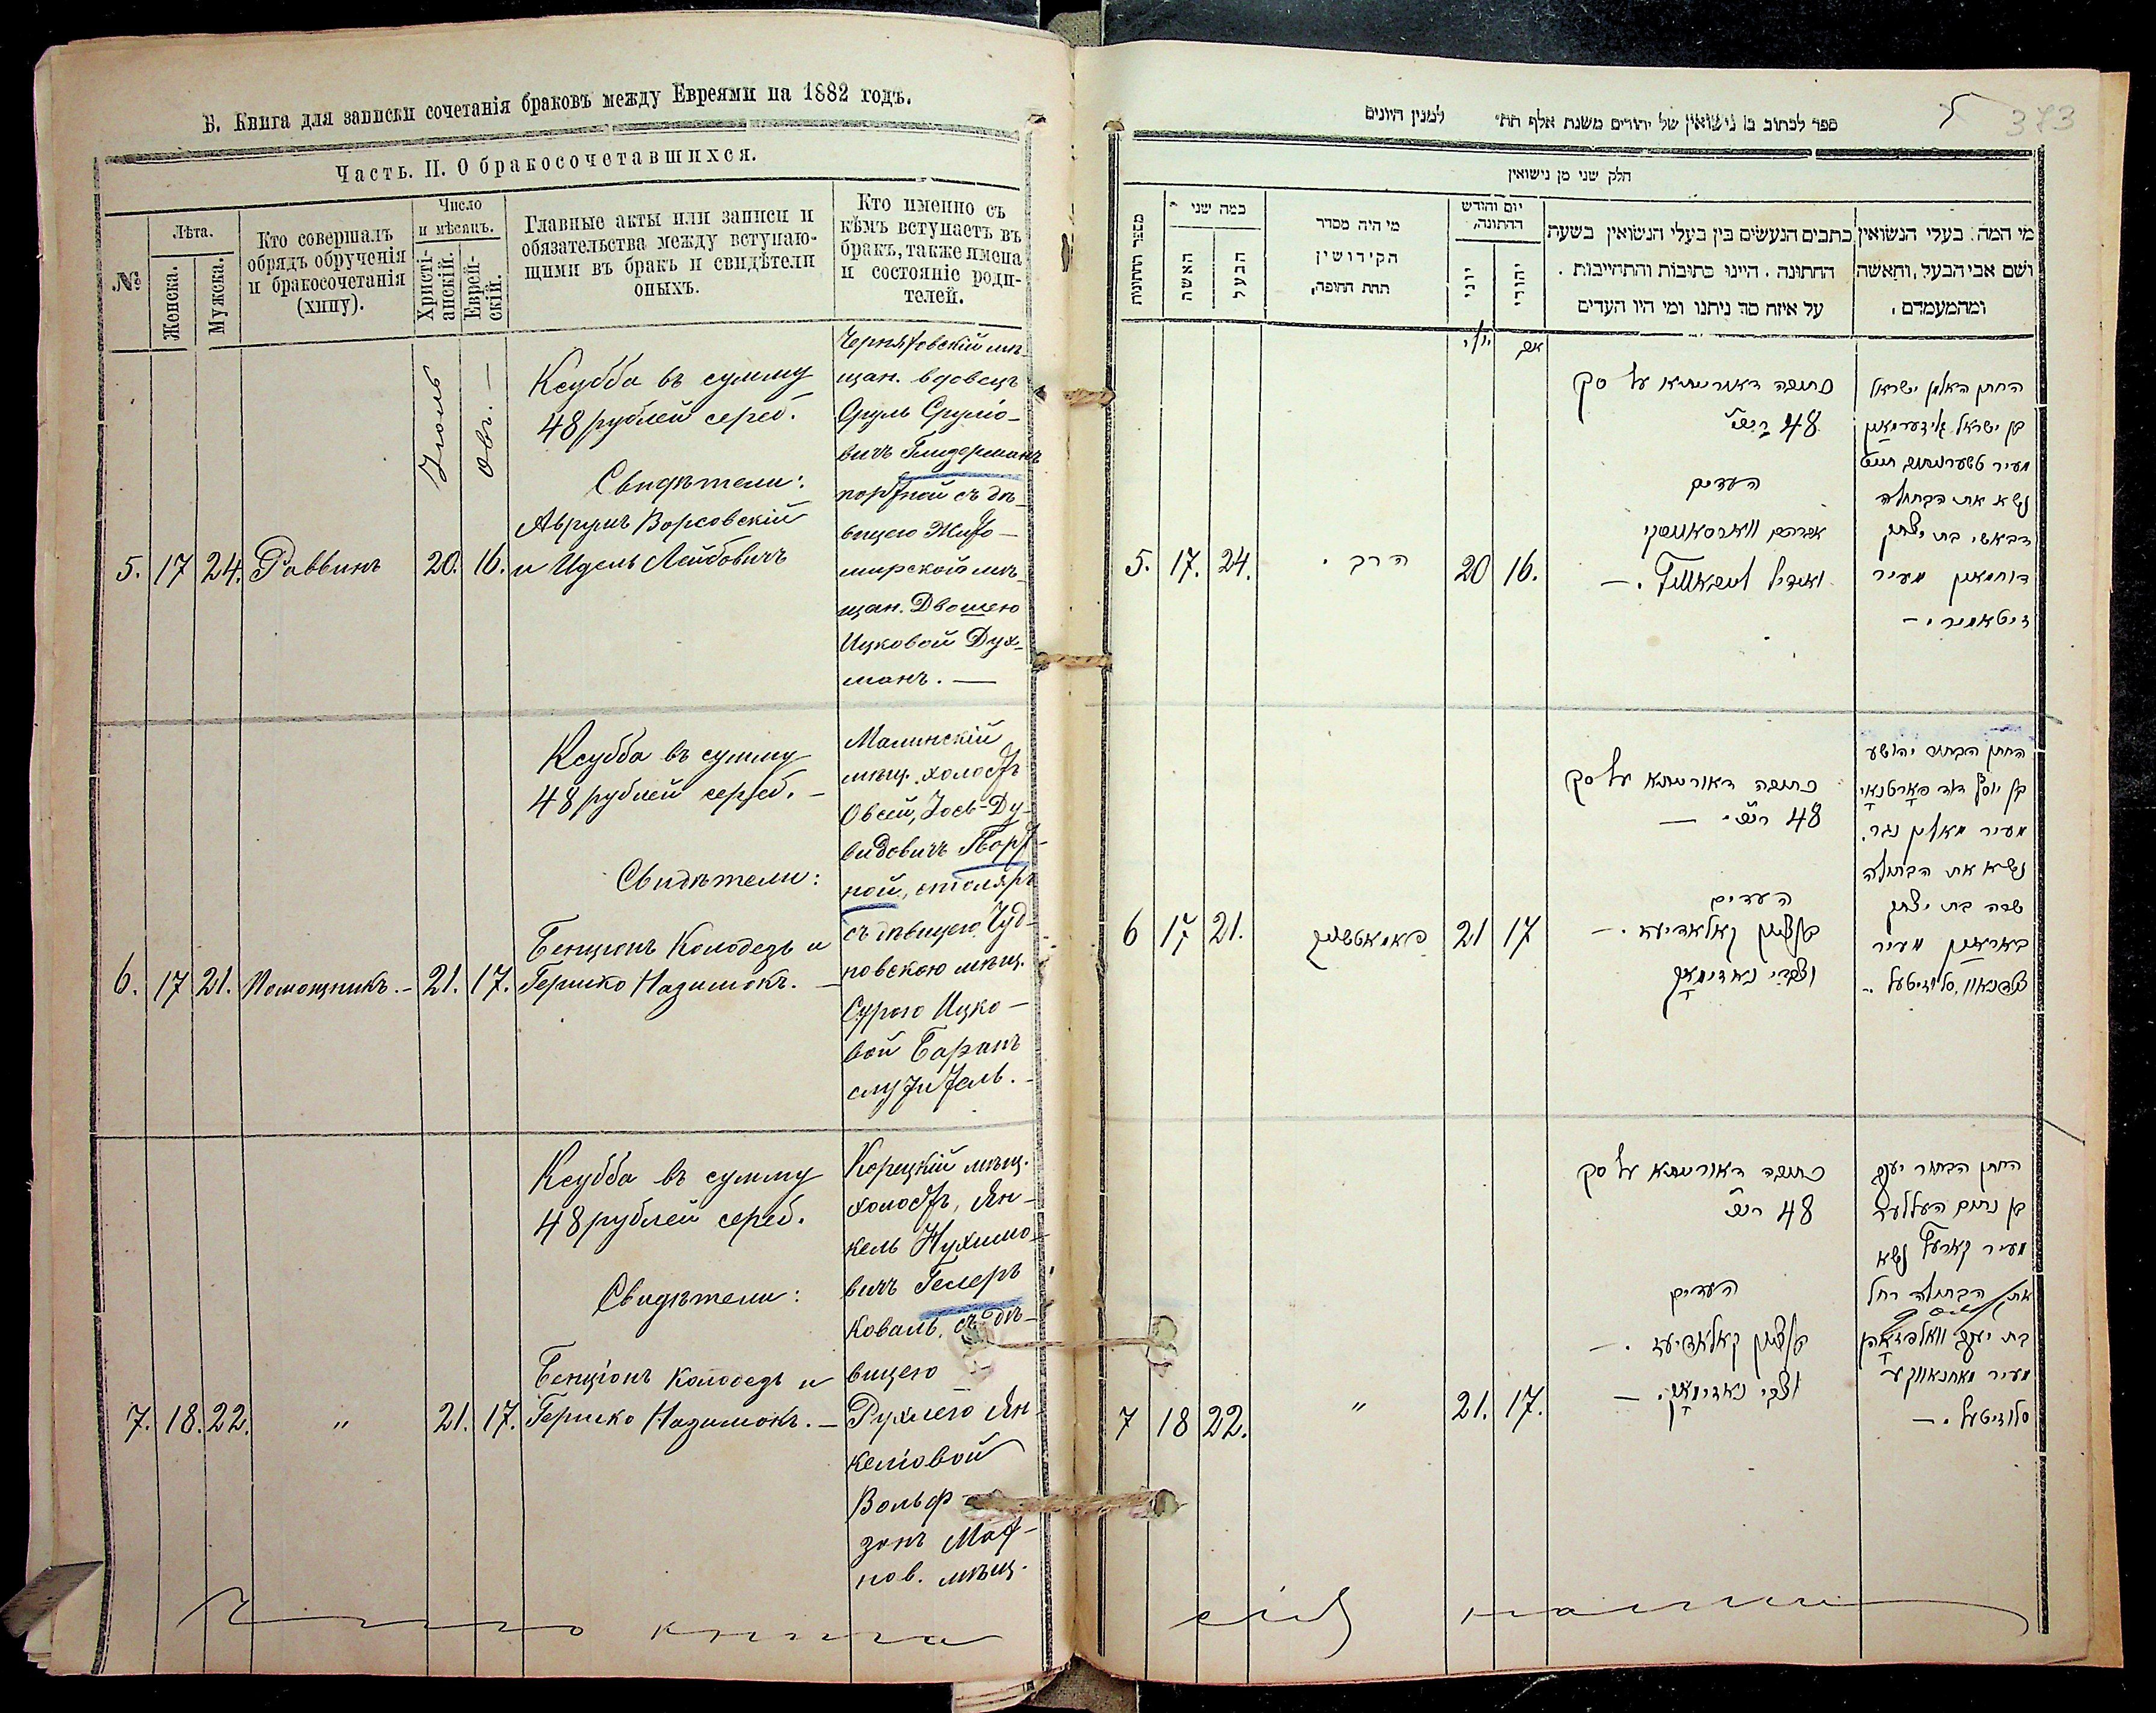 Б. Книга для записки сочетанія браковъ между Евреями на 1882 годъ.
Часть. II. О бракосочетавшихся.
№
Лѣта.
Женска.
Мужска.
Кто совершалъ
обрядъ обрученія
и бракосочетанія
(хипу).
Число
и мѣсяцъ.
Христі-
анскій.
Еврей-
скій.
Главные акты или записи и
обязательства между вступаю-
щими въ бракъ и свидѣтели
оныхъ.
Кто именно съ
кѣмъ вступаетъ въ
бракъ, также имена
и состояніе роди-
телей.
5. 17 24. Раввинъ
Іюль 20.
Овъ. — 16.
Ксубба въ сумму
48 рублей сереб.
Свидѣтели:
Аврумъ Ворсовскій
и Идель Лейбовичъ
Черняховскій мѣ-
щан. вдовецъ
Сруль Сруліо-
вичъ Глидерманъ
портной съ дѣ-
вицею Жито-
мирской мѣ-
щан. Двошею
Ицковой Дух-
манъ. —
6. 17 21. Помощникъ. — 21. 17.
Ксубба въ сумму
48 рублей сереб. —
Свидѣтели:
Бенціонъ Колодезь и
Гершко Назимокъ. —
Малинскій
мѣщ. холостъ
Овсей, Іось-Ду-
видовичъ Порт-
ной, столяръ
съ дѣвицею Чуд-
новскою мѣщ.
Сурою Ицко-
вой Баранъ
служитель. —
7. 18. 22. " 21. 17.
Ксубба въ сумму
48 рублей сереб.
Свидѣтели:
Бенціонъ Колодезь и
Гершко Назимокъ. —
Корецкій мѣщ.
холостъ, Ян-
кель Нухимо-
вичъ Гелеръ
коваль, съ дѣ-
вицею
Рухлею Ян-
келіовой
Вольф-
зонъ Мах-
нов. мѣщ.
373
ספר לכתוב בו נישואין של יהודים משנת אלף תת״ למנין היונים
חלק שני מן נישואין
מספר החתונות
כמה שני
האשה
הבעל
מי היה מסדר
הקידושין
תחת החופה,
יום וחודש
החתונה,
יוני
יהודי
כתבים הנעשים בין בעלי הנשואין בשעת
החתונה. היינו כתובות והתחייבות.
על איזה סך ניתנו ומי היו העדים
מי המה. בעלי הנשואין
ושם אבי הבעל, והאשה
ומהמעמדם.
5. 17. 24. הרב. 20 16.
יולי
אב
כתובה דאורייתא על סך
48 רו״כ
העדים
אברהם ווארסאווסקי
החתן האלמן ישראל
בן ישראל גלידערמאן
נשא את הבתולה
דבאשי בת יצחק
דוחמאן מעיר
זיטאמיר. —
6 17 21. 21 17
כתובה דאורייתא על סך
48 רו״כ —
העדים
בן ציון קאלאדיעז. —
וצבי נאזימאק
החתן הבחור יהושע
בן יוסף דוד פארטנאי
מעיר מאלין נגר.
נשא את הבתולה
שרה בת יצחק
באראן מעיר
7 18 22. " 21. 17.
כתובה דאורייתא על סך
48 רו״כ
העדים
בן ציון קאלאדיעז. —
וצבי נאזימאק. —
החתן הבחור יעקב
בן נחום העללער
מעיר קארעץ נשא
את הבתולה רחל
בת יעקב וואלפזאהן
מעיר מאחנאווקע